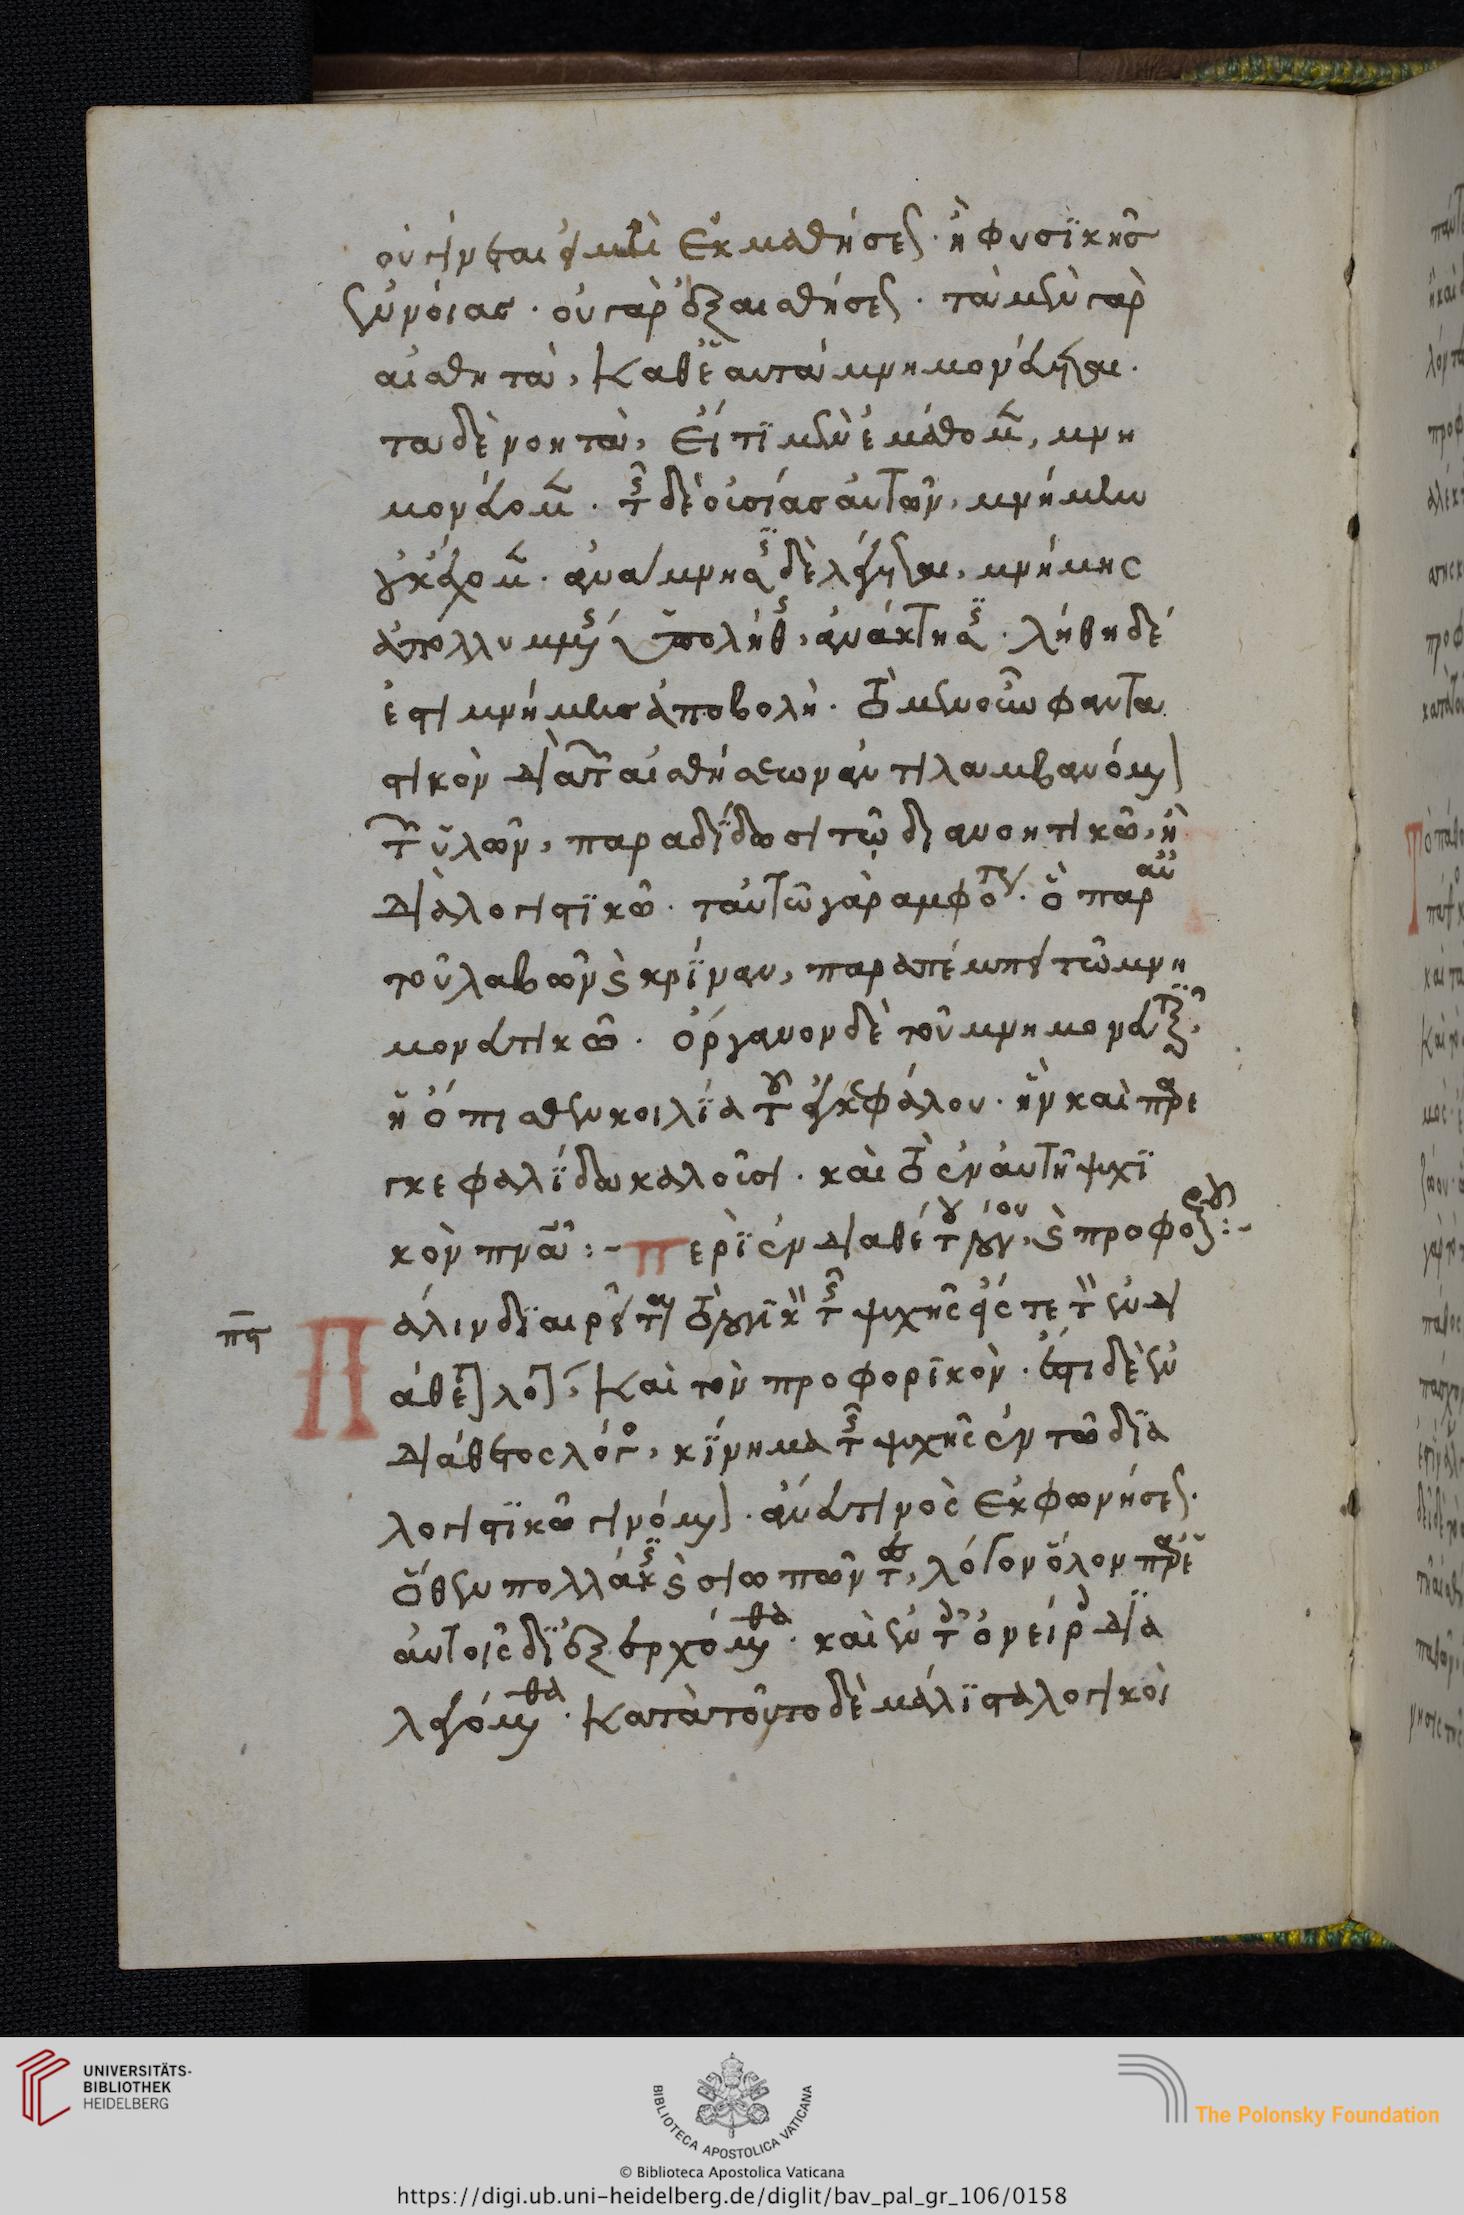 οὐ γίνεται εἰ μὴ ἐκ μαθήσεως· ἢ φυσϊκῆς
ἐννοίας· οὐ γὰρ ἐξ αἰσθήσεως· τὰ μὲν γὰρ
αἰσθητὰ, καθ' ἑαυτὰ μνημονεύεται·
τὰ δὲ νοητὰ, εἴ τϊ μὲν ἐμάθομεν, μνη
μονεύομεν· τῆς δὲ οὐσίας αὐτῶν, μνήμην
οὐκ ἔχομεν· ἀνάμνησις δὲ λέγεται, μνήμης
ἀπολλυμένης ὑπὸ λήθης, ἀνάκτησις· λήθη δέ
ἐστι μνήμης ἀποβολὴ· τὸ μὲν οὖν φαντα
στικὸν διὰ τῶν αἰσθήσεων ἀντιλαμβανόμενον
τῶν ὑλῶν, παραδίδωσι τῶ διανοητικῶ, ἢ
διαλογιστϊκῶ· ταυτῶ γὰρ ἀμφότερα· ὃ παρ αὐ
τοῦ λαβῶν καὶ κρῖναν, παραπέμπει τῶ μνη
μονευτικῶ· ὄργανον δὲ τοῦ μνημονευτϊκοῦ,
ἡ ὄπισθεν κοιλϊα τοῦ ἐγκεφάλου· ἣν καὶ παρε
γκεφαλίδα καλοῦσι· καὶ τὸ ἐν αὐτῆ ψυχϊ
κὸν πνᾶ:- Περὶ ἐνδιαθέτου λόγου, καὶ προφορικοῦ:-
πε Πάλιν διαιρεῖται τὸ λογικὸν τῆς ψυχῆς εἴς τε τὸν ἐνδι
άθετον λόγον, καὶ τὸν προφορϊκὸν· ἔστι δὲ ἐν
διάθετος λόγος, κίνημα τῆς ψυχῆς ἐν τῶ δϊα
λογιστϊκῶ γινόμενον· ἄνευ τινὸς ἐκφωνήσεως·
ὅθεν πολλάκις καὶ σιωπῶντες, λόγον ὅλον παρ' ἑ
αυτοῖς δϊεξερχόμεθα· καὶ ἐν τοῖς ὀνείροις δϊα
λεγόμεθα· κατὰ τοῦτο δὲ μάλϊστα λογικοὶ
UNIVERSITÄTS-
BIBLIOTHEK
HEIDELBERG
BIBLIOTECA APOSTOLICA VATICANA
© Biblioteca Apostolica Vaticana
The Polonsky Foundation
https://digi.ub.uni-heidelberg.de/diglit/bav_pal_gr_106/0158